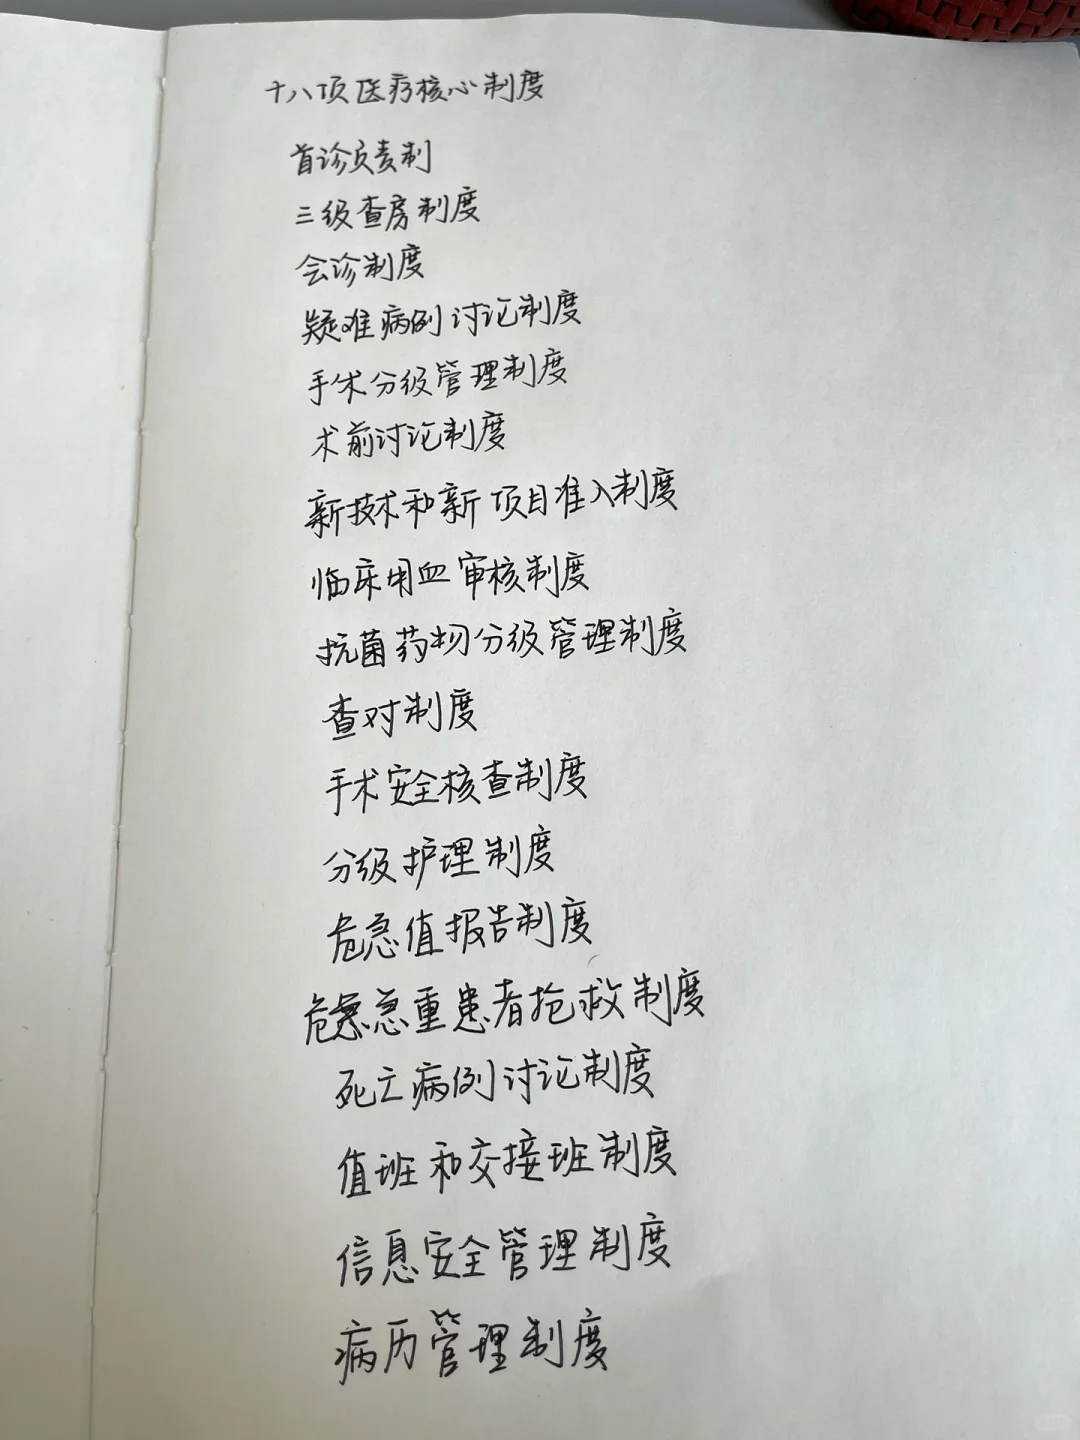 十八项医疗核心制度
首诊负责制
三级查房制度
会诊制度
疑难病例讨论制度
手术分级管理制度
术前讨论制度
新技术和新项目准入制度
临床用血审核制度
抗菌药物分级管理制度
查对制度
手术安全核查制度
分级护理制度
危急值报告制度
危急重患者抢救制度
死亡病例讨论制度
值班和交接班制度
信息安全管理制度
病历管理制度